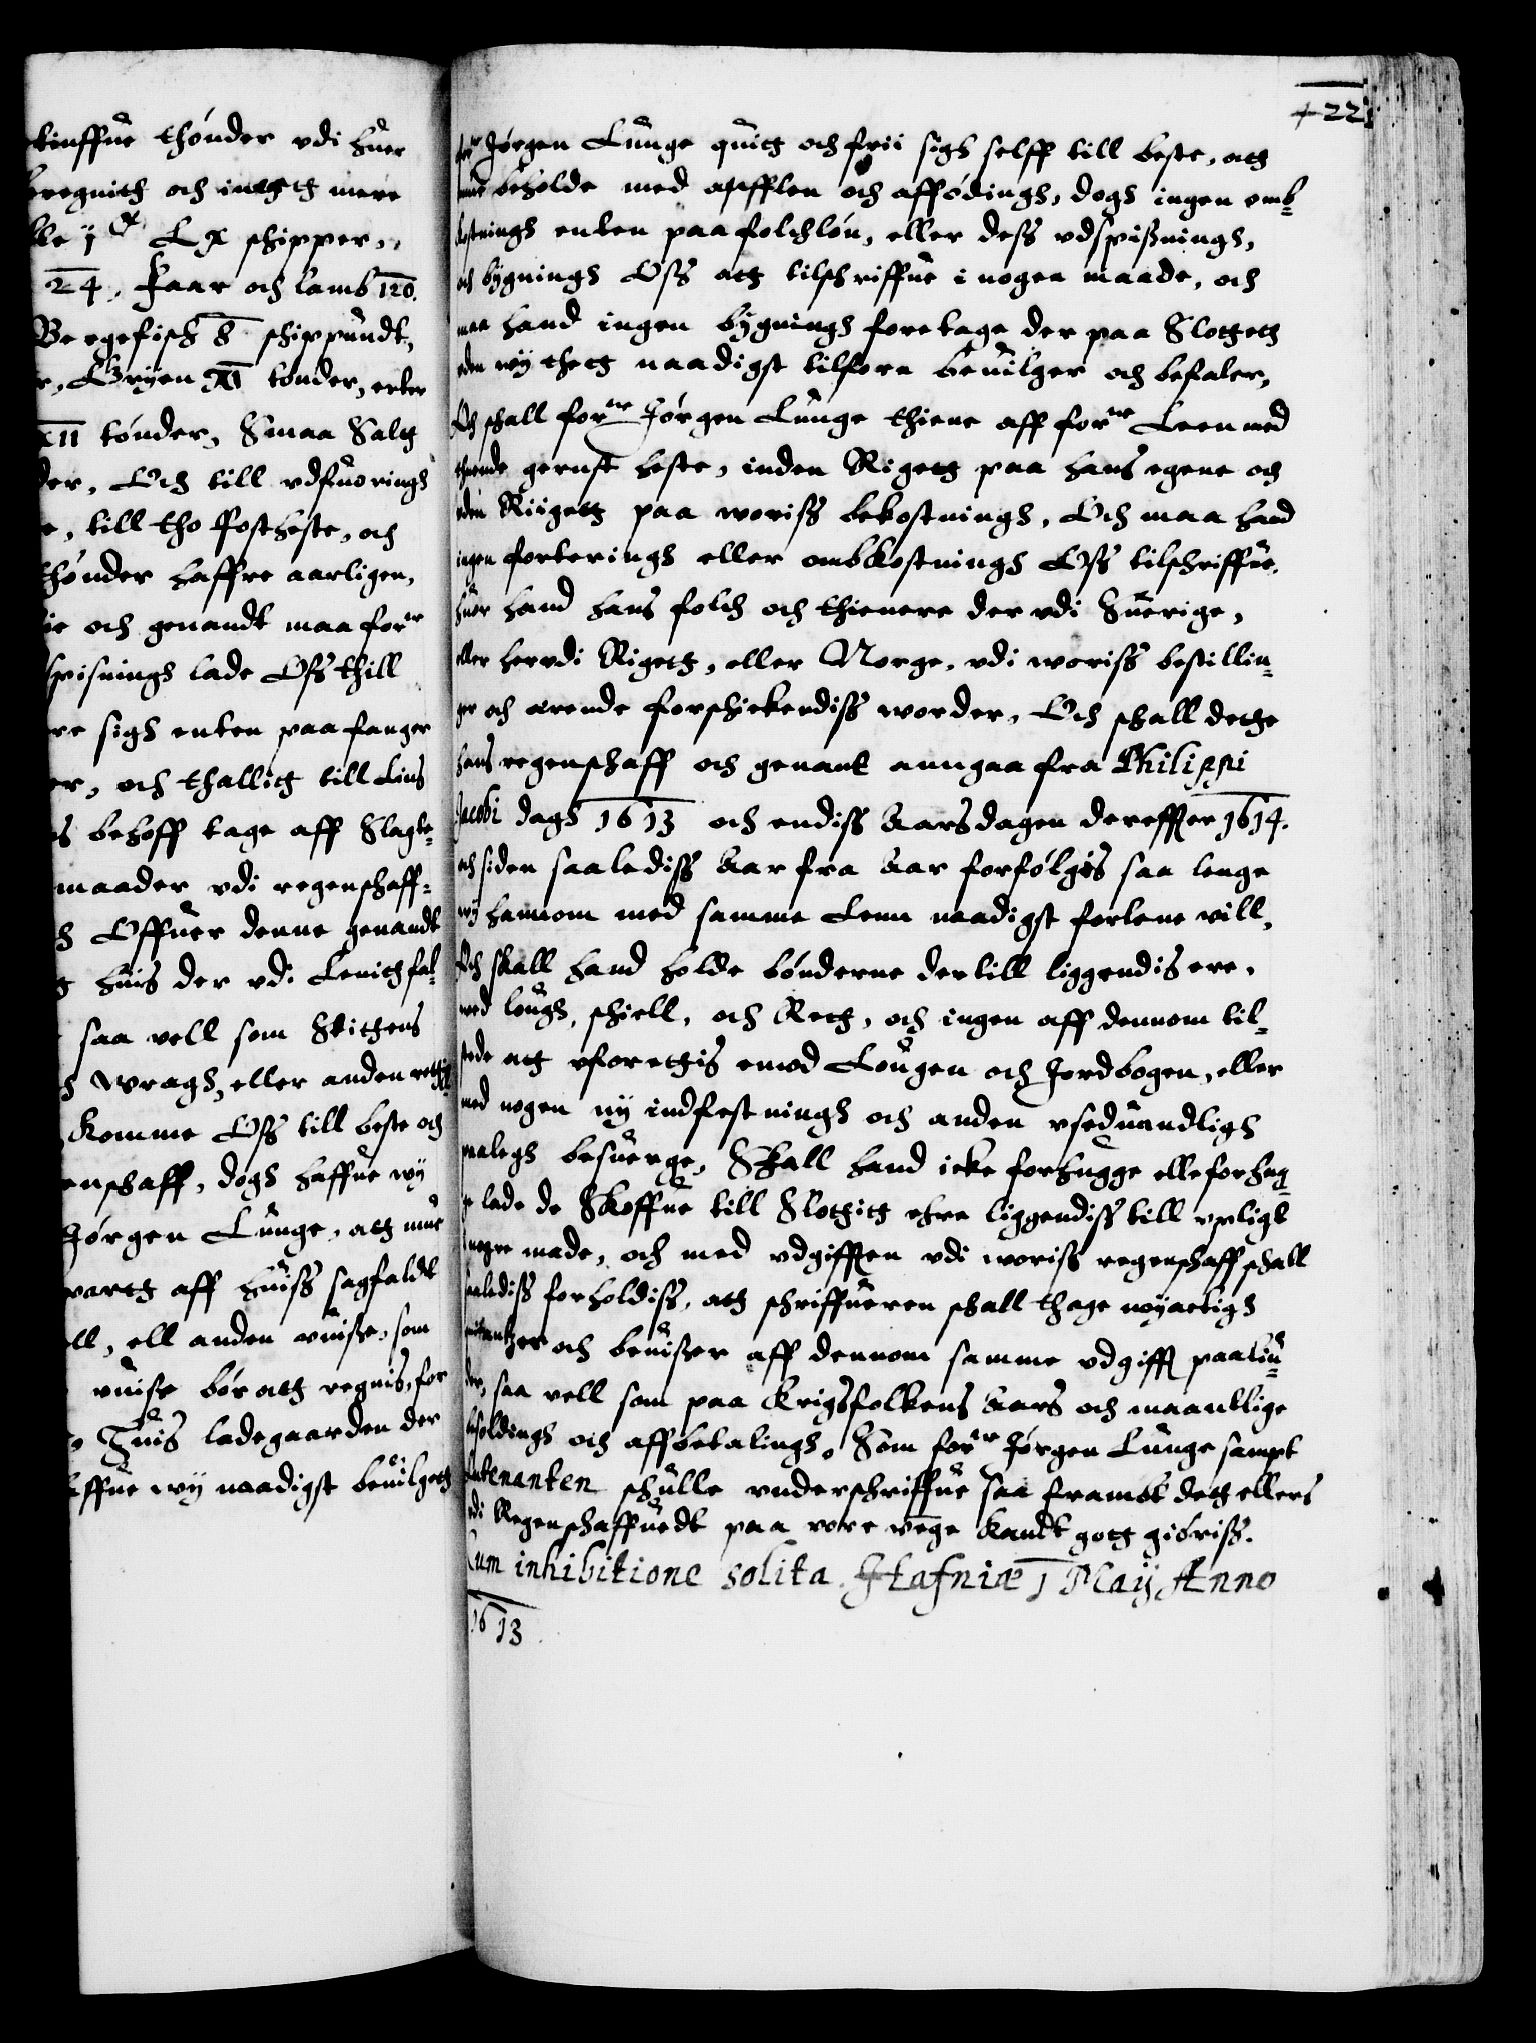 tinffue thønder vdi huer
beregnith och intet mere
Lx schipper,
24. Faar och lamb 120.
Bergefisch 8 schippundt,
Gryen XI tønder, erter
XII tønder, Smaa Salt
der, Och till vdfuorings
till tho Fosthesте, och
thønder haffre aarligen,
och genandt maa forne
spisnings lade Oss thill
sigh enten paa fanger
er, och thallith till Lius
behoff tage aff Slagte-
maader vdi regenschaff-
Offuer denne genandt
huis der vdi Lenith fal-
saa vell som Stichens
wragh, eller anden retti
Komme Oss till beste och
enschaff, dogh haffue wy
Jørgen Lunge, ath mue
parth aff huiss sagfaldt
ell, ell anden vuisse, som
vuise bør ath regnis, for
Huis ladegaarden der
haffue wy naadigst beuilgeth
+221
forne Jørgen Lunge quith och frii sigh selff till beste, ath
mue beholde med affflen och affødingh, dogh ingen omb-
kostningh enten paa folchløn, eller dess vdspisningh,
och bygningh Oss ath tilschriffue i nogen maade, och
maa hand ingen bygningh foretage der paa Slotteth
vden wy theth naadigst tilforn beuilger och befaler,
Och schall forne Jørgen Lunge thiene aff forne Leen med
thuende gerust heste, inden Rigeth paa hans egene och
vden Riigeth paa woriss bekostningh, Och maa hand
ingen forteringh eller ombkostningh Oss tilschriffue,
huor hand hans folch och thienere der vdi Suerige,
eller her vdi Rigeth, eller Norge, vdi woriss bestillin-
ger och ærende forschickendiss worder, Och schall dette
hans regenschaff och genant anngaa fra Philippi
Jacobi dagh 1613 och endiss Aarsdagen derefter 1614.
och siden saalediss Aar fra Aar forfølgis saa lenge
wy hannom med samme Lenn naadigst forlene vill,
Och skall hand holde bønderne dertill liggendis ere,
wed lough, schiell, och Reth, och ingen aff dennom til-
stede ath vforettis emod Lougen och Jordbogen, eller
med nogen ny indfestningh och anden vseduandligh
paalegh besuerge, Skall hand icke forhugge elle forhug-
ge lade de Skoffue till Slottith ehre liggendiss till vpligt
i nogre made, och med vdgifften vdi woriss regenschaff schall
saalediss forholdiss, ath schriffueren schall thage nøyactigh
quitantzer och beuisser aff dennom samme vdgifft paaliu-
der, saa vell som paa Krigsfolkens Aars och maantlige
besoldingh och affbetalingh, Som forne Jørgen Lunge sampt
Lutenanten schulle vnderschriffue saa frambt deth ellers
vdi Regenschaffuedt paa vore vegne Kandt goth giøriss.
Cum inhibitione solita. Hafniæ 1 Maij Anno
1613.